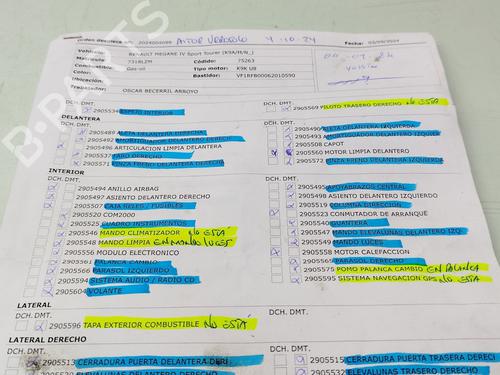 Orden desolece nº: 2024004089 AITOR VERDOLO 4-10-24 Fecha: 
Vehículo: RENAULT MEGANE IV Sport Tourer (K9A/M/N_)
Matrícula 7318LZM Código: 75263
Combustible: Gas-oil Tipo motor: K9K U8
Ubicación: Bastidor: VF1RFB00062010590
Trabajador: OSCAR BECERRIL ARROYO
DCH. DMT. DCH. DMT.
2905534 ESPEJO INTERIOR
2905569 PILOTO TRASERO DERECHO NO ESTA
DELANTERA
2905489 ALETA DELANTERA DERECHA
2905490 ALETA DELANTERA IZQUIERDA
2905492 AMORTIGUADOR DELANTERO DERECH
AMORTIGUADOR DELANTERO IZQUIER
2905496 ARTICULACION LIMPIA DELANTERA
2905508 CAPOT
2905537 FARO DERECHO
2905560 MOTOR LIMPIA DELANTERO
2905571 PINZA FRENO DELANTERA DERECHA
2905572 PINZA FRENO DELANTERA IZQUIERD
INTERIOR
DCH. DMT. DCH. DMT.
2905494 ANILLO AIRBAG
2905495 APOYABRAZOS CENTRAL
2905497 ASIENTO DELANTERO DERECHO
ASIENTO DELANTERO IZQUIERDO
2905507 CAJA RELES / FUSIBLES
COLUMNA DIRECCION
2905520 COM2000
2905523 CONMUTADOR DE ARRANQUE
2905525 CUADRO INSTRUMENTOS
GUANTERA
2905546 MANDO CLIMATIZADOR NO ESTA
MANDO ELEVALUNAS DELANTERO IZQ
2905548 MANDO LIMPIA EN MANDO LUCES
2905549 MANDO LUCES
2905556 MODULO ELECTRONICO
2905558 MOTOR CALEFACCION
2905561 PALANCA CAMBIO
PARASOL DERECHO
2905566 PARASOL IZQUIERDO
2905575 POMO PALANCA CAMBIO EN PALANCA
2905594 SISTEMA AUDIO / RADIO CD
2905595 SISTEMA NAVEGACION GPS NO ESTA
2905604 VOLANTE
LATERAL
DCH. DMT.
2905596 TAPA EXTERIOR COMBUSTIBLE NO ESTÁ
LATERAL DERECHO
DCH. DMT. DCH. DMT.
2905513 CERRADURA PUERTA DELANTERA DERECI
2905515 CERRADURA PUERTA TRASERA DERECI
ELEVALUNAS DELANTERO DERECHO
ELEVALUNAS TRASERO DERECHO